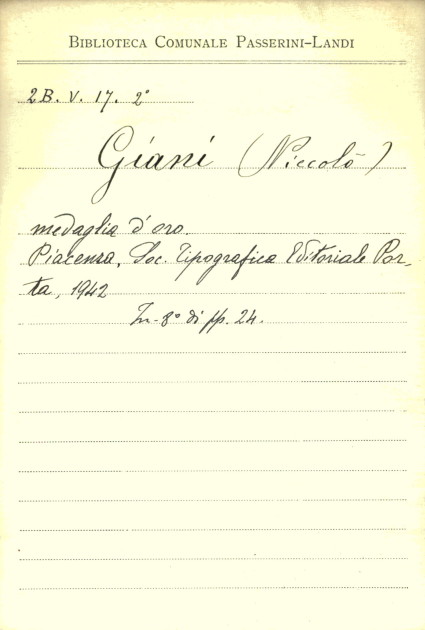 BIBLIOTECA COMUNALE PASSERINI-LANDI
2B. V. 17. 2°
Giani (Niccolò)
medaglia d'oro.
Piacenza, Soc. Tipografica Editoriale Por-
ta, 1942
In-8° di pp. 24.